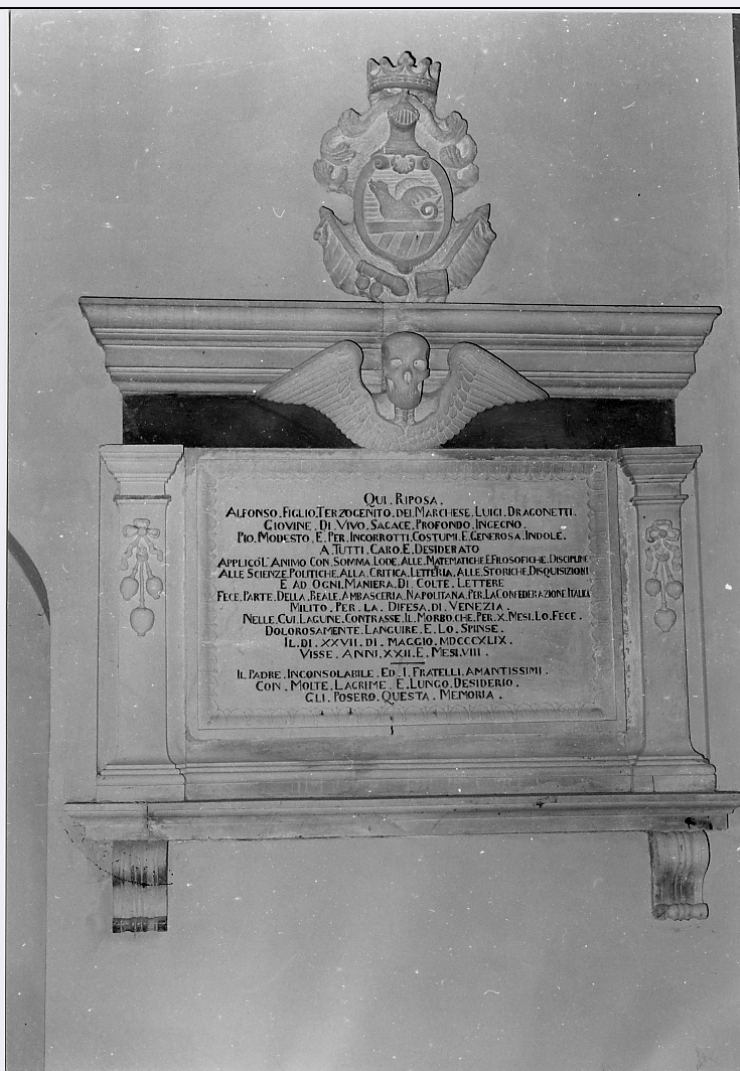 QUI. RIPOSA.
ALFONSO. FIGLIO. TERZOGENITO. DEL MARCHESE. LUIGI. DRAGONETTI.
GIOVINE. DI. VIVO. SAGACE. PROFONDO. INGEGNO.
PIO. MODESTO. E. PER. INCORROTTI. COSTUMI. E. GENEROSA. INDOLE.
A. TUTTI. CARO. E. DESIDERATO
APPLICÒ. L'ANIMO CON. SOMMA. LODE. ALLE. MATEMATICHE. E. FILOSOFICHE. DISCIPLINE
ALLE SCIENZE. POLITICHE. ALLA. CRITICA. LETTERIA. ALLE. STORICHE. DISQUISIZIONI
E AD OGNI. MANIERA. DI COLTE. LETTERE
FECE. PARTE. DELLA. REALE. AMBASCERIA. NAPOLITANA. PER. LA CONFEDERAZIONE. ITALICA
MILITO. PER. LA. DIFESA. DI. VENEZIA.
NELLE. CUI. LAGUNE. CONTRASSE. IL. MORBO. CHE. PER. X. MESI. LO. FECE.
DOLOROSAMENTE. LANGUIRE. E. LO. SPINSE.
IL. DI. XXVII. DI. MAGGIO. MDCCCXLIX.
VISSE. ANNI. XXII. E. MESI. VIII.
IL. PADRE. INCONSOLABILE. ED. I. FRATELLI. AMANTISSIMI.
CON. MOLTE. LAGRIME. E. LUNGO. DESIDERIO.
GLI. POSERO. QUESTA. MEMORIA.